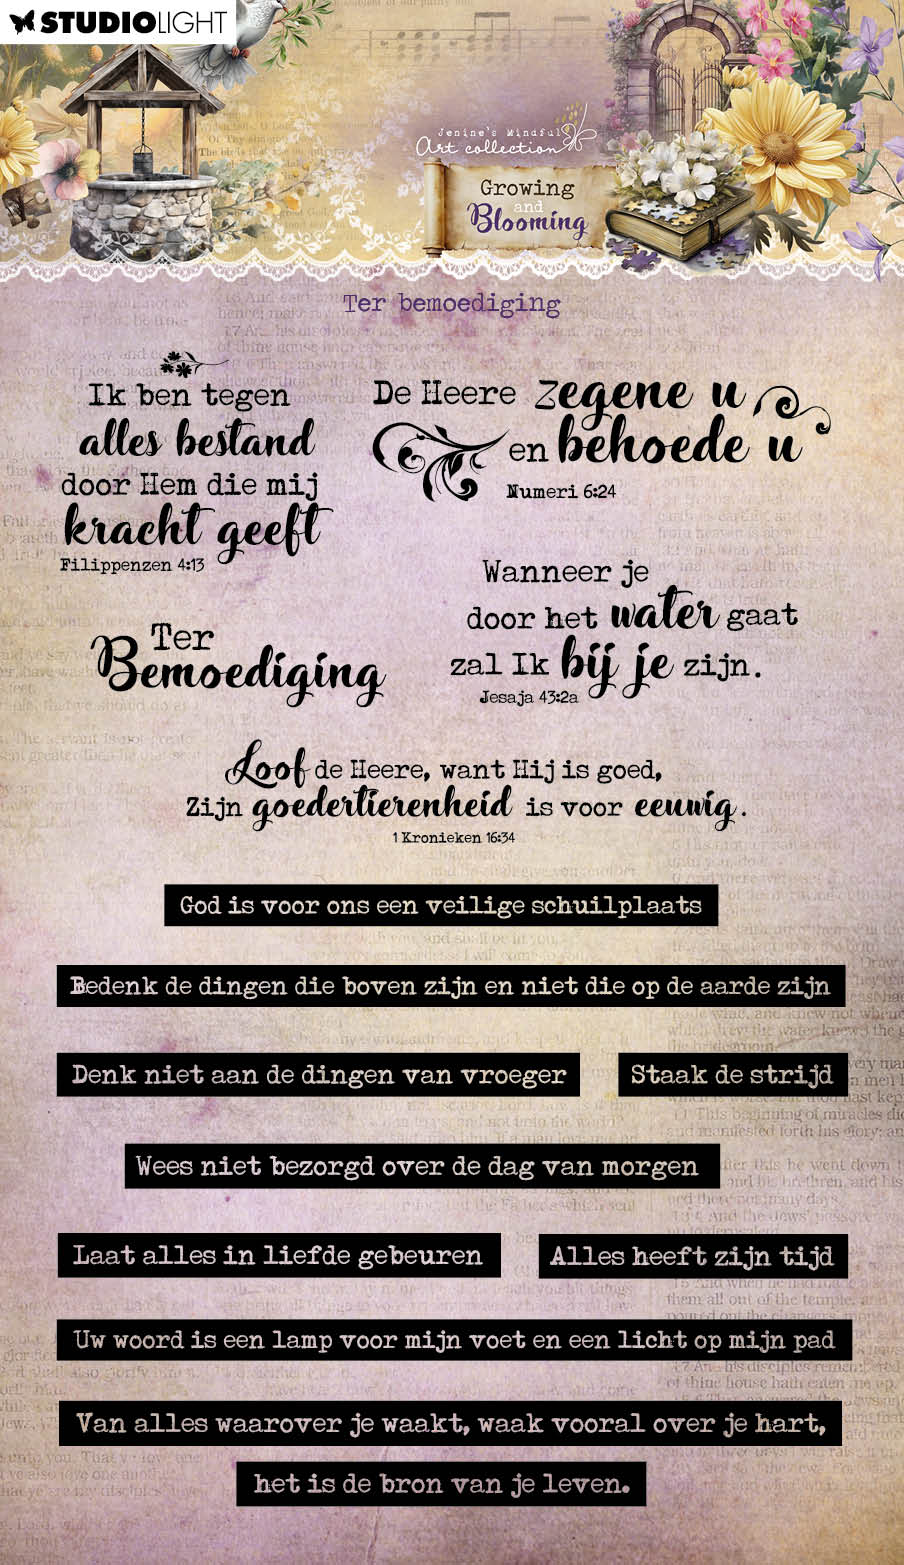 STUDIOLIGHT
Jenine's Mindful
Art collection
Growing
and
Blooming
Ter bemoediging
Ik ben tegen
alles bestand
door Hem die mij
kracht geeft
Filippenzen 4:13
De Heere zegene u
en behoede u
Numeri 6:24
Wanneer je
door het water gaat
zal Ik bij je zijn.
Jesaja 43:2a
Ter
Bemoediging
Loof de Heere, want Hij is goed,
Zijn goedertierenheid is voor eeuwig.
1 Kronieken 16:34
God is voor ons een veilige schuilplaats
Bedenk de dingen die boven zijn en niet die op de aarde zijn
Denk niet aan de dingen van vroeger
Staak de strijd
Wees niet bezorgd over de dag van morgen
Laat alles in liefde gebeuren
Alles heeft zijn tijd
Uw woord is een lamp voor mijn voet en een licht op mijn pad
Van alles waarover je waakt, waak vooral over je hart,
het is de bron van je leven.